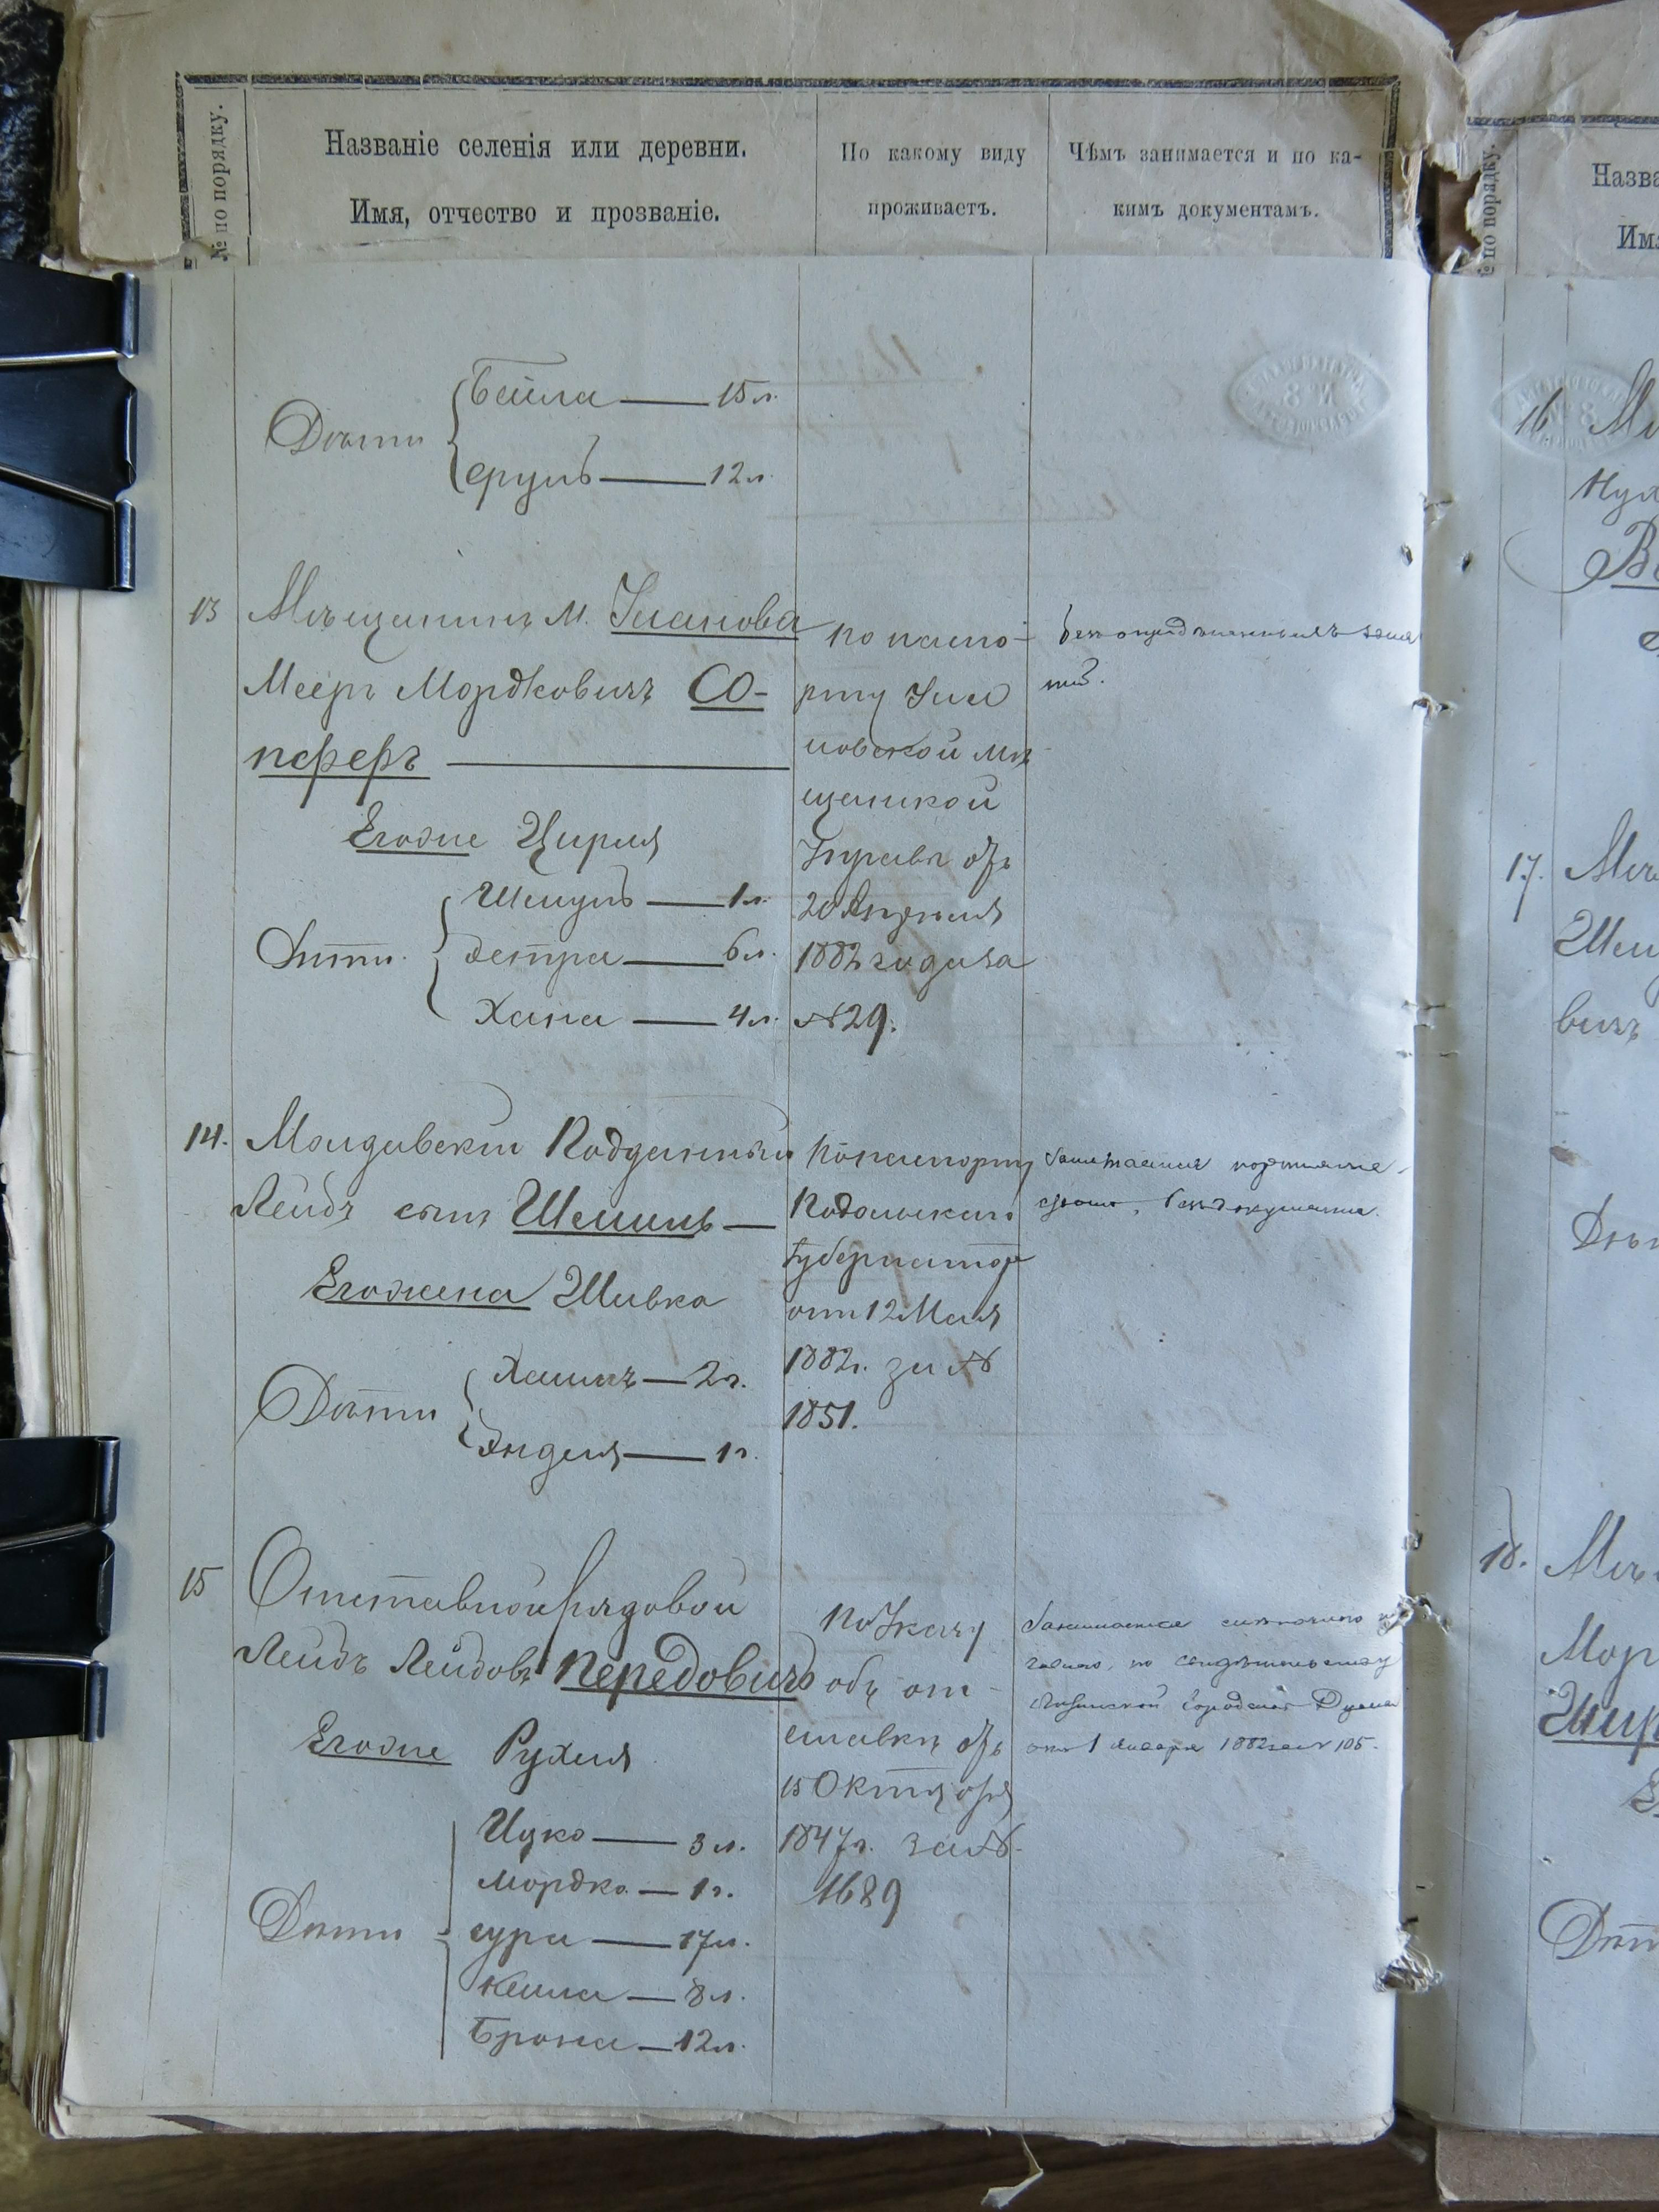 № по порядку.
Названіе селенія или деревни.
Имя, отчество и прозваніе.
По какому виду
проживаетъ.
Чѣмъ занимается и по ка-
кимъ документамъ.
Дѣти
Бейла — 15 л.
Сруль — 12 л.
13
Мѣщанинъ м. Уланова
Мееръ Мордковичъ Со-
пферъ
Его же Цирля
Дѣти
Шмуль — 1 л.
Хана — 4 л.
По паспо-
рту Ула
новской мѣ
щанской
Управы отъ
20 Апрѣля
1882 года за
№ 29.
Безъ опредѣленныхъ заня
тій.
14.
Молдавскій Подданный
Лейбъ сынъ
Его жена Шивка
Дѣти
Хаимъ — 2 г.
Эндля — 1 г.
По паспорту
Подольскаго
Губернатор
отъ 12 Мая
1882 г. за №
1851.
Занимается
безъ документа.
15
Отставной рядовой
Лейбъ Лейбовъ Передовичъ
Его же Рухля
Дѣти
Ицко — 3 л.
Мордко — 1 г.
Сура — 17 л.
Кейла — 8 л.
Брона — 12 л.
По Указу
объ от-
ставкѣ отъ
15 Октября
1847 г. за №
1689
Занимается
по свидѣтельству
Городской Думы
отъ 1 Января 1882 за № 105.
№ по порядку.
Назва
Имя
16
17.
18.
Шму
вичъ
Дѣт
Мор
Дѣт